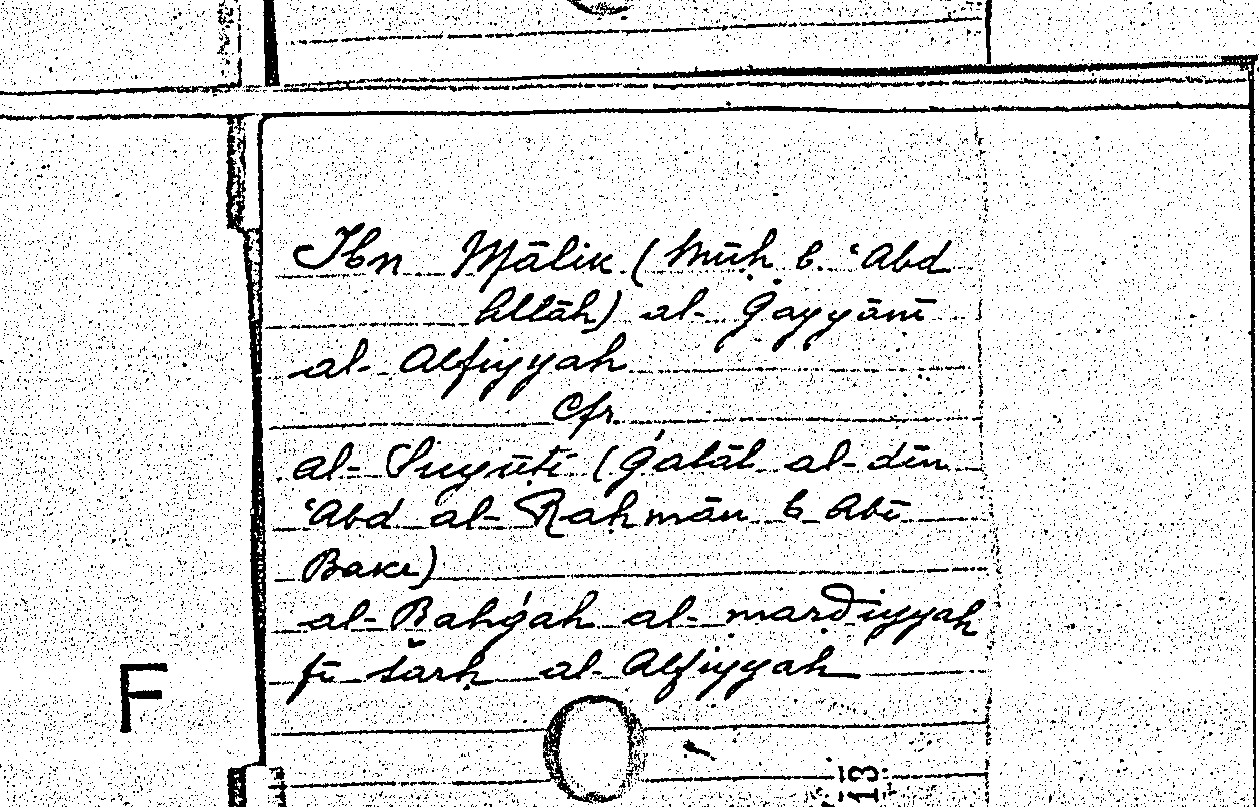 Ibn Mālik (Muḥ b. ʿAbd
Allāh) al- Ġayyānī
al- Alfiyyah
Cfr.
al- Suyūṭī (Ǵalāl al-dīn
ʿAbd al-Raḥmān b Abī
Bakr)
al-Bahǵah al- marḍiyyah
fī šarḥ al- Alfiyyah
F
13